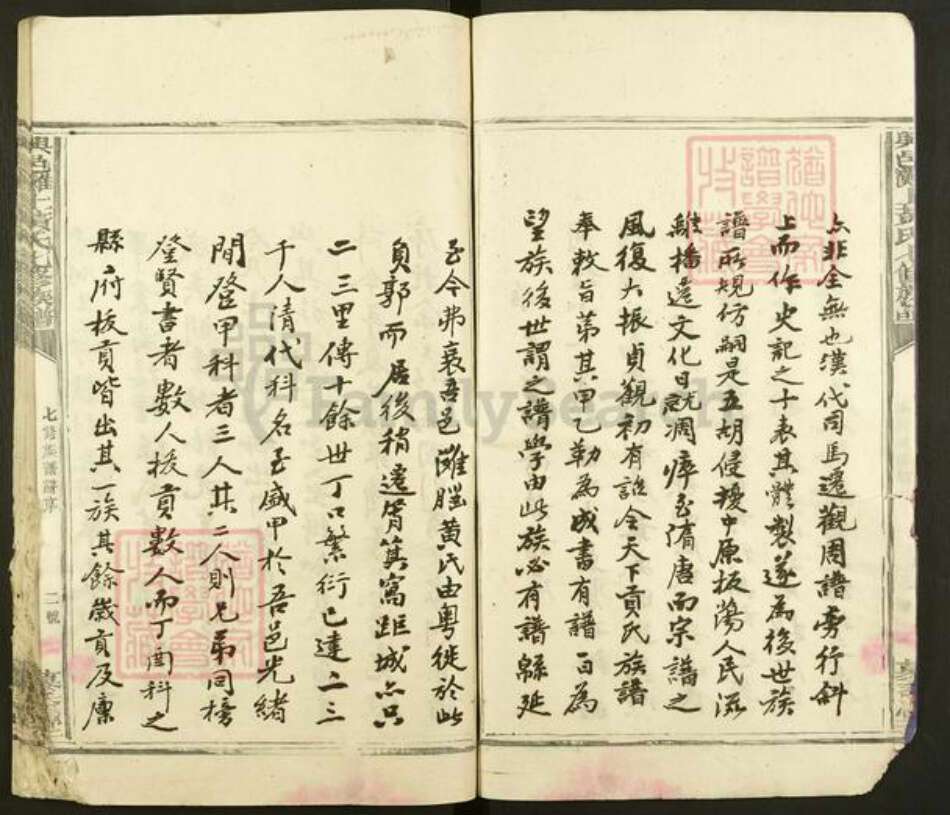 亦非全無也漢代司馬遷觀周譜旁行斜
上而作史記之十表其體製遂為後世族
譜所規仿嗣是五胡侵擾中原板蕩人民流
離播遷文化日就凋瘵至隋唐而宗譜之
風復大振貞觀初有詔令天下貢氏族譜
奉敕旨第其甲乙勒為成書有譜百為
望族後世謂之譜學由此族必有譜綿延
至今弗衰吾邑灘腦黃氏由粵徙於此
負郭而居後稍遷箕窩距城亦只
二三里傳十餘世丁口繁衍已達二三
千人清代科名至盛甲於吾邑光緒
間登甲科者三人其二人則兄弟同榜
登賢書者數人拔貢數人而丁酉科之
縣府拔貢皆出其一族其餘歲貢及廩
七修族譜譜序
二號
FamilySearch